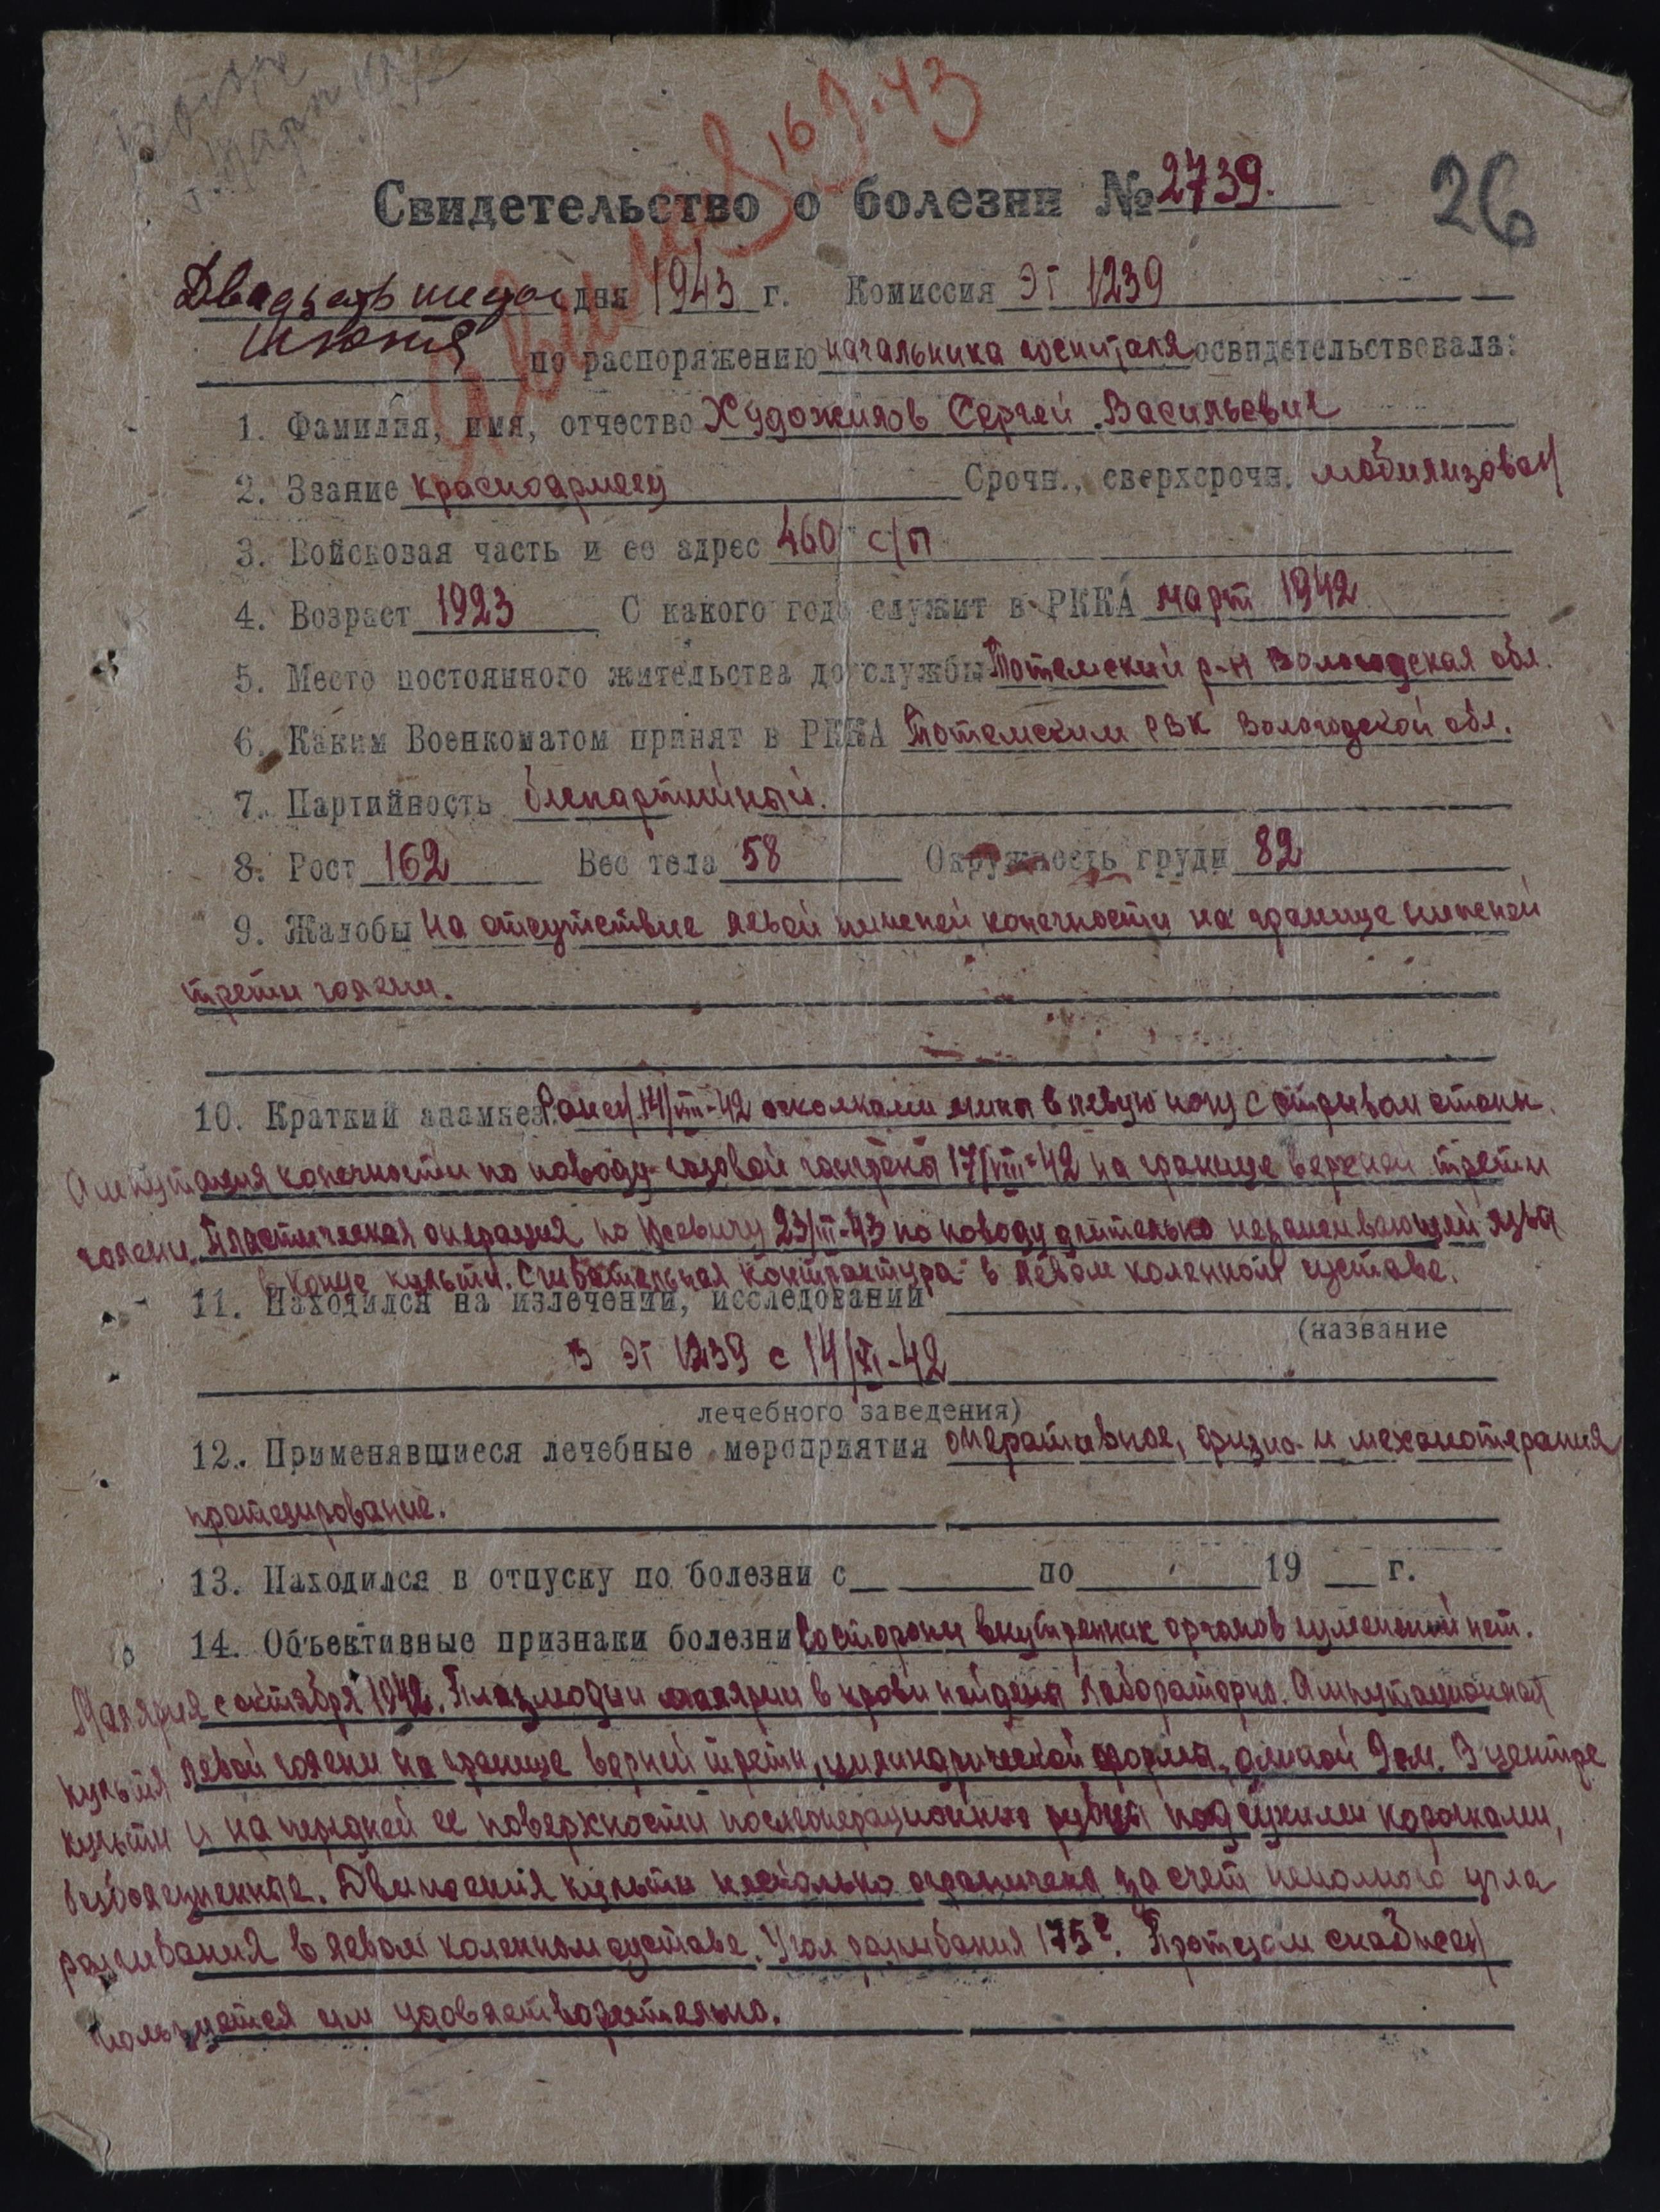 16 43
Свидетельство о болезни № 2739.
26
Двадцать дня 1943 г. Комиссия ЭГ 1239
по распоряжению начальника госпиталя освидетельствовала:
1. Фамилия, имя, отчество Художилов Сергей Васильевич
2. Звание красноармеец Срочн., сверхсрочн. мобилизован
3. Войсковая часть и ее адрес 460 с/п
4. Возраст 1923 С какого года служит в РККА март 1942
5. Место постоянного жительства до службы Тотемский р-н Вологодская обл.
6. Каким Военкоматом принят в РККА Тотемским РВК Вологодской обл.
7. Партийность беспартийный.
8. Рост 162 Вес тела 58 Окружность груди 82
9. Жалобы на отсутствие левой нижней конечности на границе нижней
трети голени.
10. Краткий анамнез Ранен 14/VIII-42 осколками мины в левую ногу с отрывом стопы.
Ампутация конечности по поводу газовой гангрены 17/VIII-42 на границе верхней трети
голени. Пластическая операция по 23/III-43 по поводу длительно незаживающей язвы
в конце культи. Сгибательная контрактура в левом коленном суставе.
11. Находился на излечении, исследовании
(название
в ЭГ 1239 с 14/XI-42
лечебного заведения)
12. Применявшиеся лечебные мероприятия оперативное, физио- и механотерапия
протезирование.
13. Находился в отпуску по болезни с по 19 г.
14. Объективные признаки болезни Со стороны внутренних органов изменений нет.
Малярия с октября 1942. Плазмодии малярии в крови найдены лабораторно. Ампутационная
культя левой голени на границе верхней трети, цилиндрической формы, длиной 9 см. В центре
культи и на передней ее поверхности послеоперационные рубцы под сухими корочками,
безболезненные. Движения культи несколько ограничены за счет неполного угла
разгибания в левом коленном суставе. Угол разгибания 175°. Протезом снабжен
пользуется им удовлетворительно.